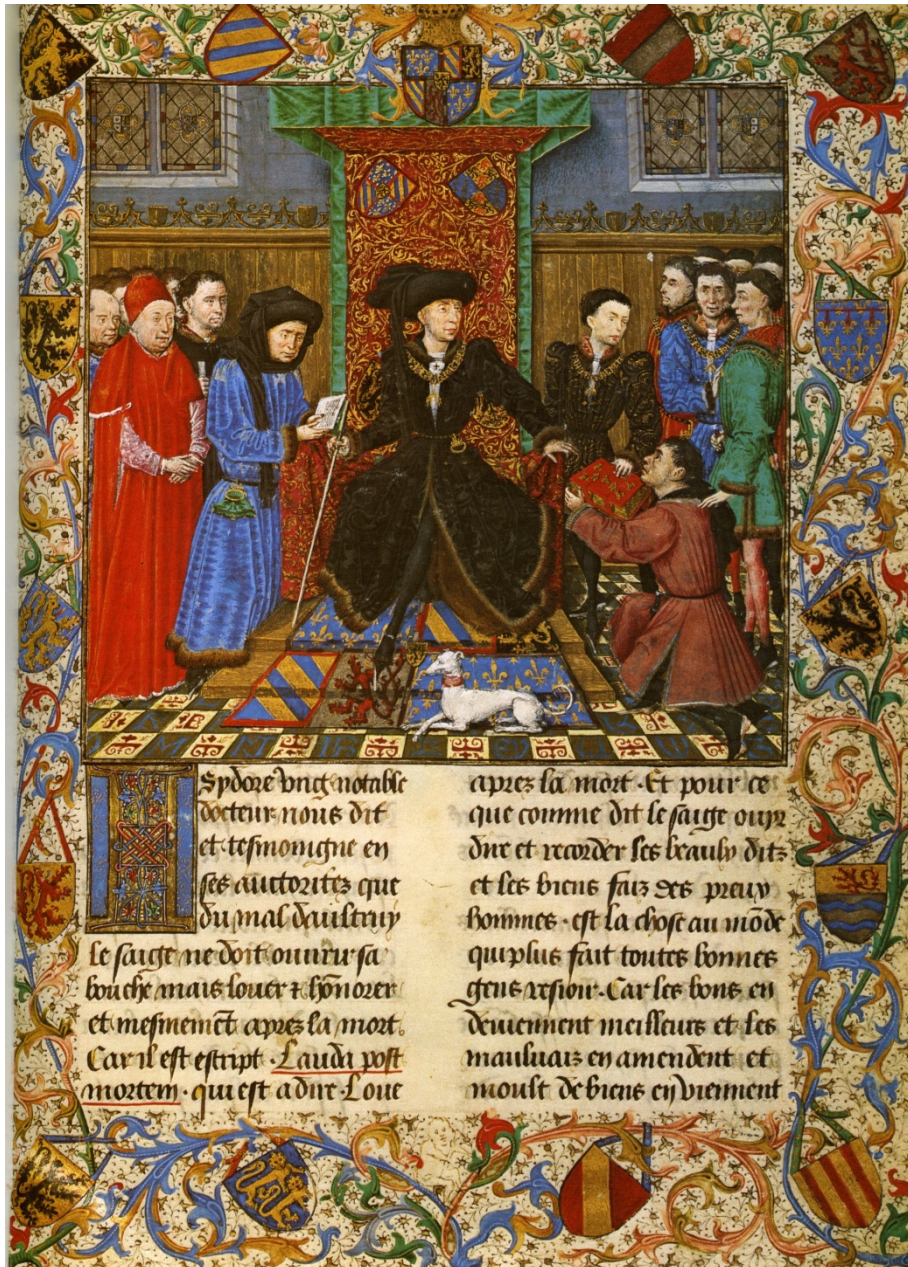 Isydore vng notable
docteur nous dit
et tesmoingne en
ses auctoritez que
du mal daultruy
le saige ne doit ouurir sa
bouche mais louer & hōnorer
et mesmemēt apres la mort.
Car il est escript. Lauda post
mortem. qui est a dire Loue
apres la mort. Et pour ce
que comme dit le saige ouyr
dire et recorder les beaulx ditz
et les biens faiz des preux
hommes. est la chose au mōde
qui plus fait toutes bonnes
gens resioir. Car les bons en
deuiennent meilleurs et les
mauluaiz en amendent et
moult de biens en viennent